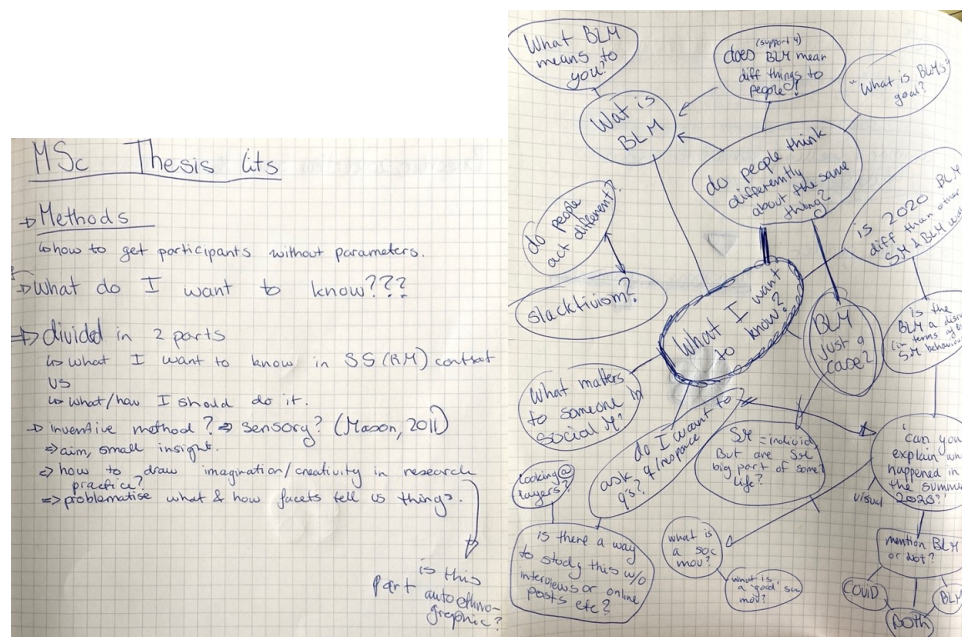 MSc Thesis lits
→ Methods
↳ how to get participants without parameters.
→ What do I want to know???
⇒ divided in 2 parts
↳ what I want to know in SS (RM) context
VS
↳ what/how I should do it.
→ inventive method? → sensory? (Mason, 2011)
⇒ aim, small insight.
→ how to draw imagination/creativity in research
practice?
⇒ problematise what & how facets tell us things.
is this
part autoethno-
graphic?
What BLM
means to
you?
Wat is
BLM
(support 4)
does BLM mean
diff things to
people?
"What is BLMs
goal?
do people think
differently
about the same
thing?
is 2020 BLM
diff than other
SM & BLM
do people
act different?
slacktivism?
What I want
to know?
BLM
just a
case?
is the
BLM a
in terms of
SM behaviour
What matters
to someone in
Social M?
do I want to
ask q's? & response
SM = individ.
But are SM
big part of some
life?
'can you
explain
happened in
the summer
2020?'
visual
looking@
layers?
is there a way
to study this w/o
interviews or online
posts etc?
what is
a soc
mov?
what is
a 'good' soc
mov?
mention BLM
or not?
COVID
BLM
Both